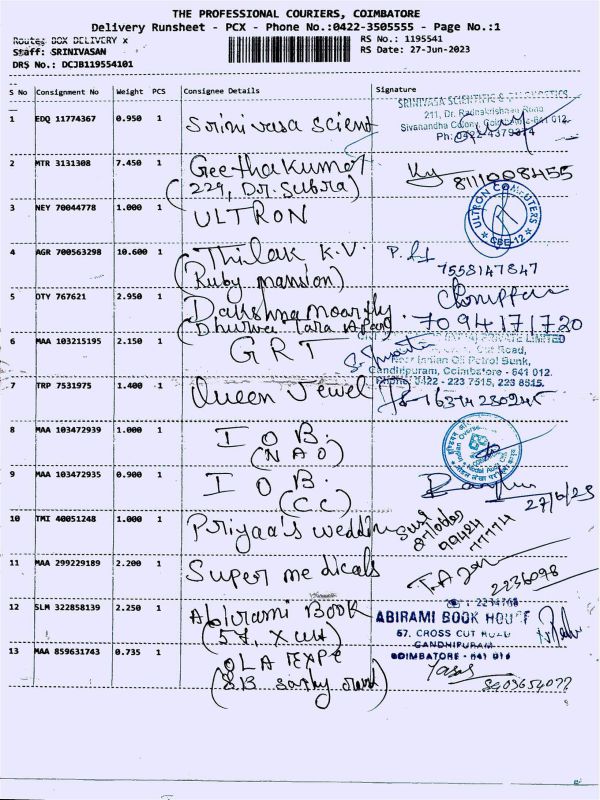 THE PROFESSIONAL COURIERS, COIMBATORE
Delivery Runsheet - PCX - Phone No.:0422-3505555 - Page No.:1
Route: BOX DELIVERY x
RS No.: 1195541
Staff: SRINIVASAN
RS Date: 27-Jun-2023
DRS No.: DCJB119554101
S No Consignment No Weight PCS Consignee Details Signature
SRINIVASA SCIENTIFIC &
211, Dr. Radhakrishnan Road
1 EDQ 11774367 0.950 1 Srinivasa Scient
Sivanandha Colony, Coimbatore-641 012.
Ph: 0422-4379314
2 MTR 3131308 7.450 1 Geethakumar
(229, Dr. Subra)
8111008455
3 NEY 70044778 1.000 1 ULTRON
ULTRON COMPUTERS
CBE-12
4 AGR 700563298 10.600 1 Thilak K.V.
(Ruby mansion)
7558147847
5 OTY 767621 2.950 1 Dakshnamoorthy
(Dhurva Tara Apart)
7094171720
6 MAA 103215195 2.150 1 GRT
PRIVATE LIMITED
Cut Road,
Near Indian Oil Petrol Bunk,
Gandhipuram, Coimbatore - 641 012.
Phone: 0422 - 223 7515, 223 8515.
7 TRP 7531975 1.400 1 Queen Jewel
8 MAA 103472939 1.000 1 IOB.
(NAO)
9 MAA 103472935 0.900 1 IOB.
(C.C)
27/6/23
10 TMI 40051248 1.000 1 Priyaa's weddin
99424
77774
11 MAA 299229189 2.200 1 Super medicals
2236098
12 SLM 322858139 2.250 1 Abirami Book
(57, X cut)
ABIRAMI BOOK HOUSE
57. CROSS CUT ROAD
GANDHIPURAM
COIMBATORE - 641 012
13 MAA 859631743 0.735 1 OLA EXPE